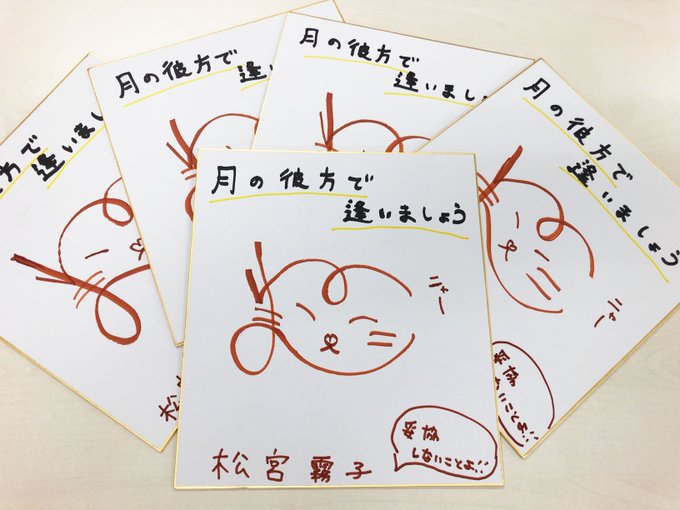 方で
逢いまし
松
月の彼方で
逢い
月の彼方で
逢いまし
月の彼方で
逢いましょう
ニャー
協
ないことよ!!
月の彼方で
逢いましょう
ニャー
妥協
しないことよ!!
松宮霧子